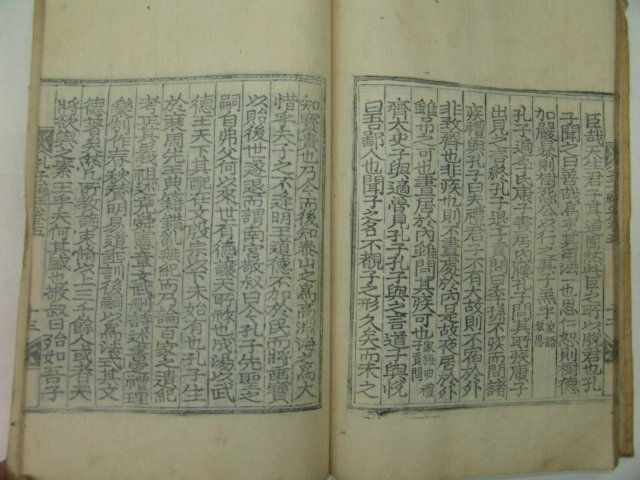 臣哉天生君子其道固然此臣之所以脫君也孔
子聞之曰善哉爲吏其用法一也思仁恕則樹德
加嚴暴則樹怨公以行之其子羔乎 家語致思
孔子適季氏康子晝居內寢孔子問其所疾康子
出見之言終孔子退子貢問曰季孫不疾而問諸
疾禮與孔子曰夫禮君子不有大故則不宿於外
非致齊也非疾也則不晝處於內是故夜居於外
雖弔之可也晝居於內雖問其疾可也 家語曲禮子貢問
齊太史子與適魯見孔子孔子與之言道子與悅
曰吾鄙人也聞子之名不覩子之形久矣而未之
知寶貴也乃今而後知泰山之爲高淵海之爲大
惜乎夫子之不逢明王道德不加於民而將垂寶
以貽後世遂退而謂南宮敬叔曰今孔子先聖之
嗣自弗父何以來世有德讓天所祚也成湯以武
德王天下其配在文殷宗以下未始有也孔子生
於衰周先王典籍錯亂無紀而乃論百家之遺紀
考正其義祖述堯舜憲章文武刪詩述書定禮理
樂制作春秋讚明易道垂訓後嗣以爲法式其文
德著矣然凡所敎誨束脩以上三千餘人或者天
將欲與之素王乎夫何其盛也敬叔曰殆如吾子
孔子編年卷五
十三